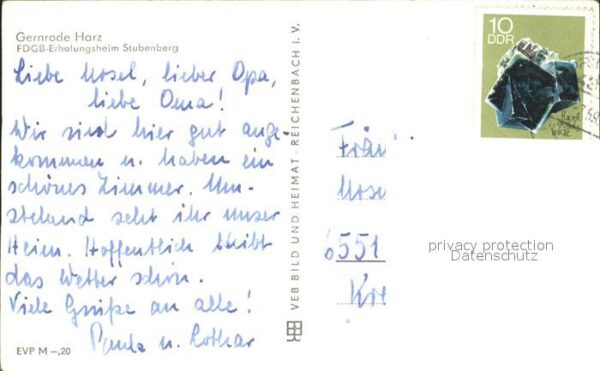 Gernrode Harz
FDGB-Erholungsheim Stubenberg
Liebe Mosel, lieber Opa,
liebe Oma!
Wir sind hier gut ange-
kommen u. haben ein
schönes Zimmer. Um-
stehend seht ihr unser
Heim. Hoffentlich bleibt
das Wetter schön.
Viele Grüße an alle!
Paula u. Lothar
EVP M –,20
VEB BILD UND HEIMAT · REICHENBACH i. V.
10
DDR
6551
privacy protection
Datenschutz